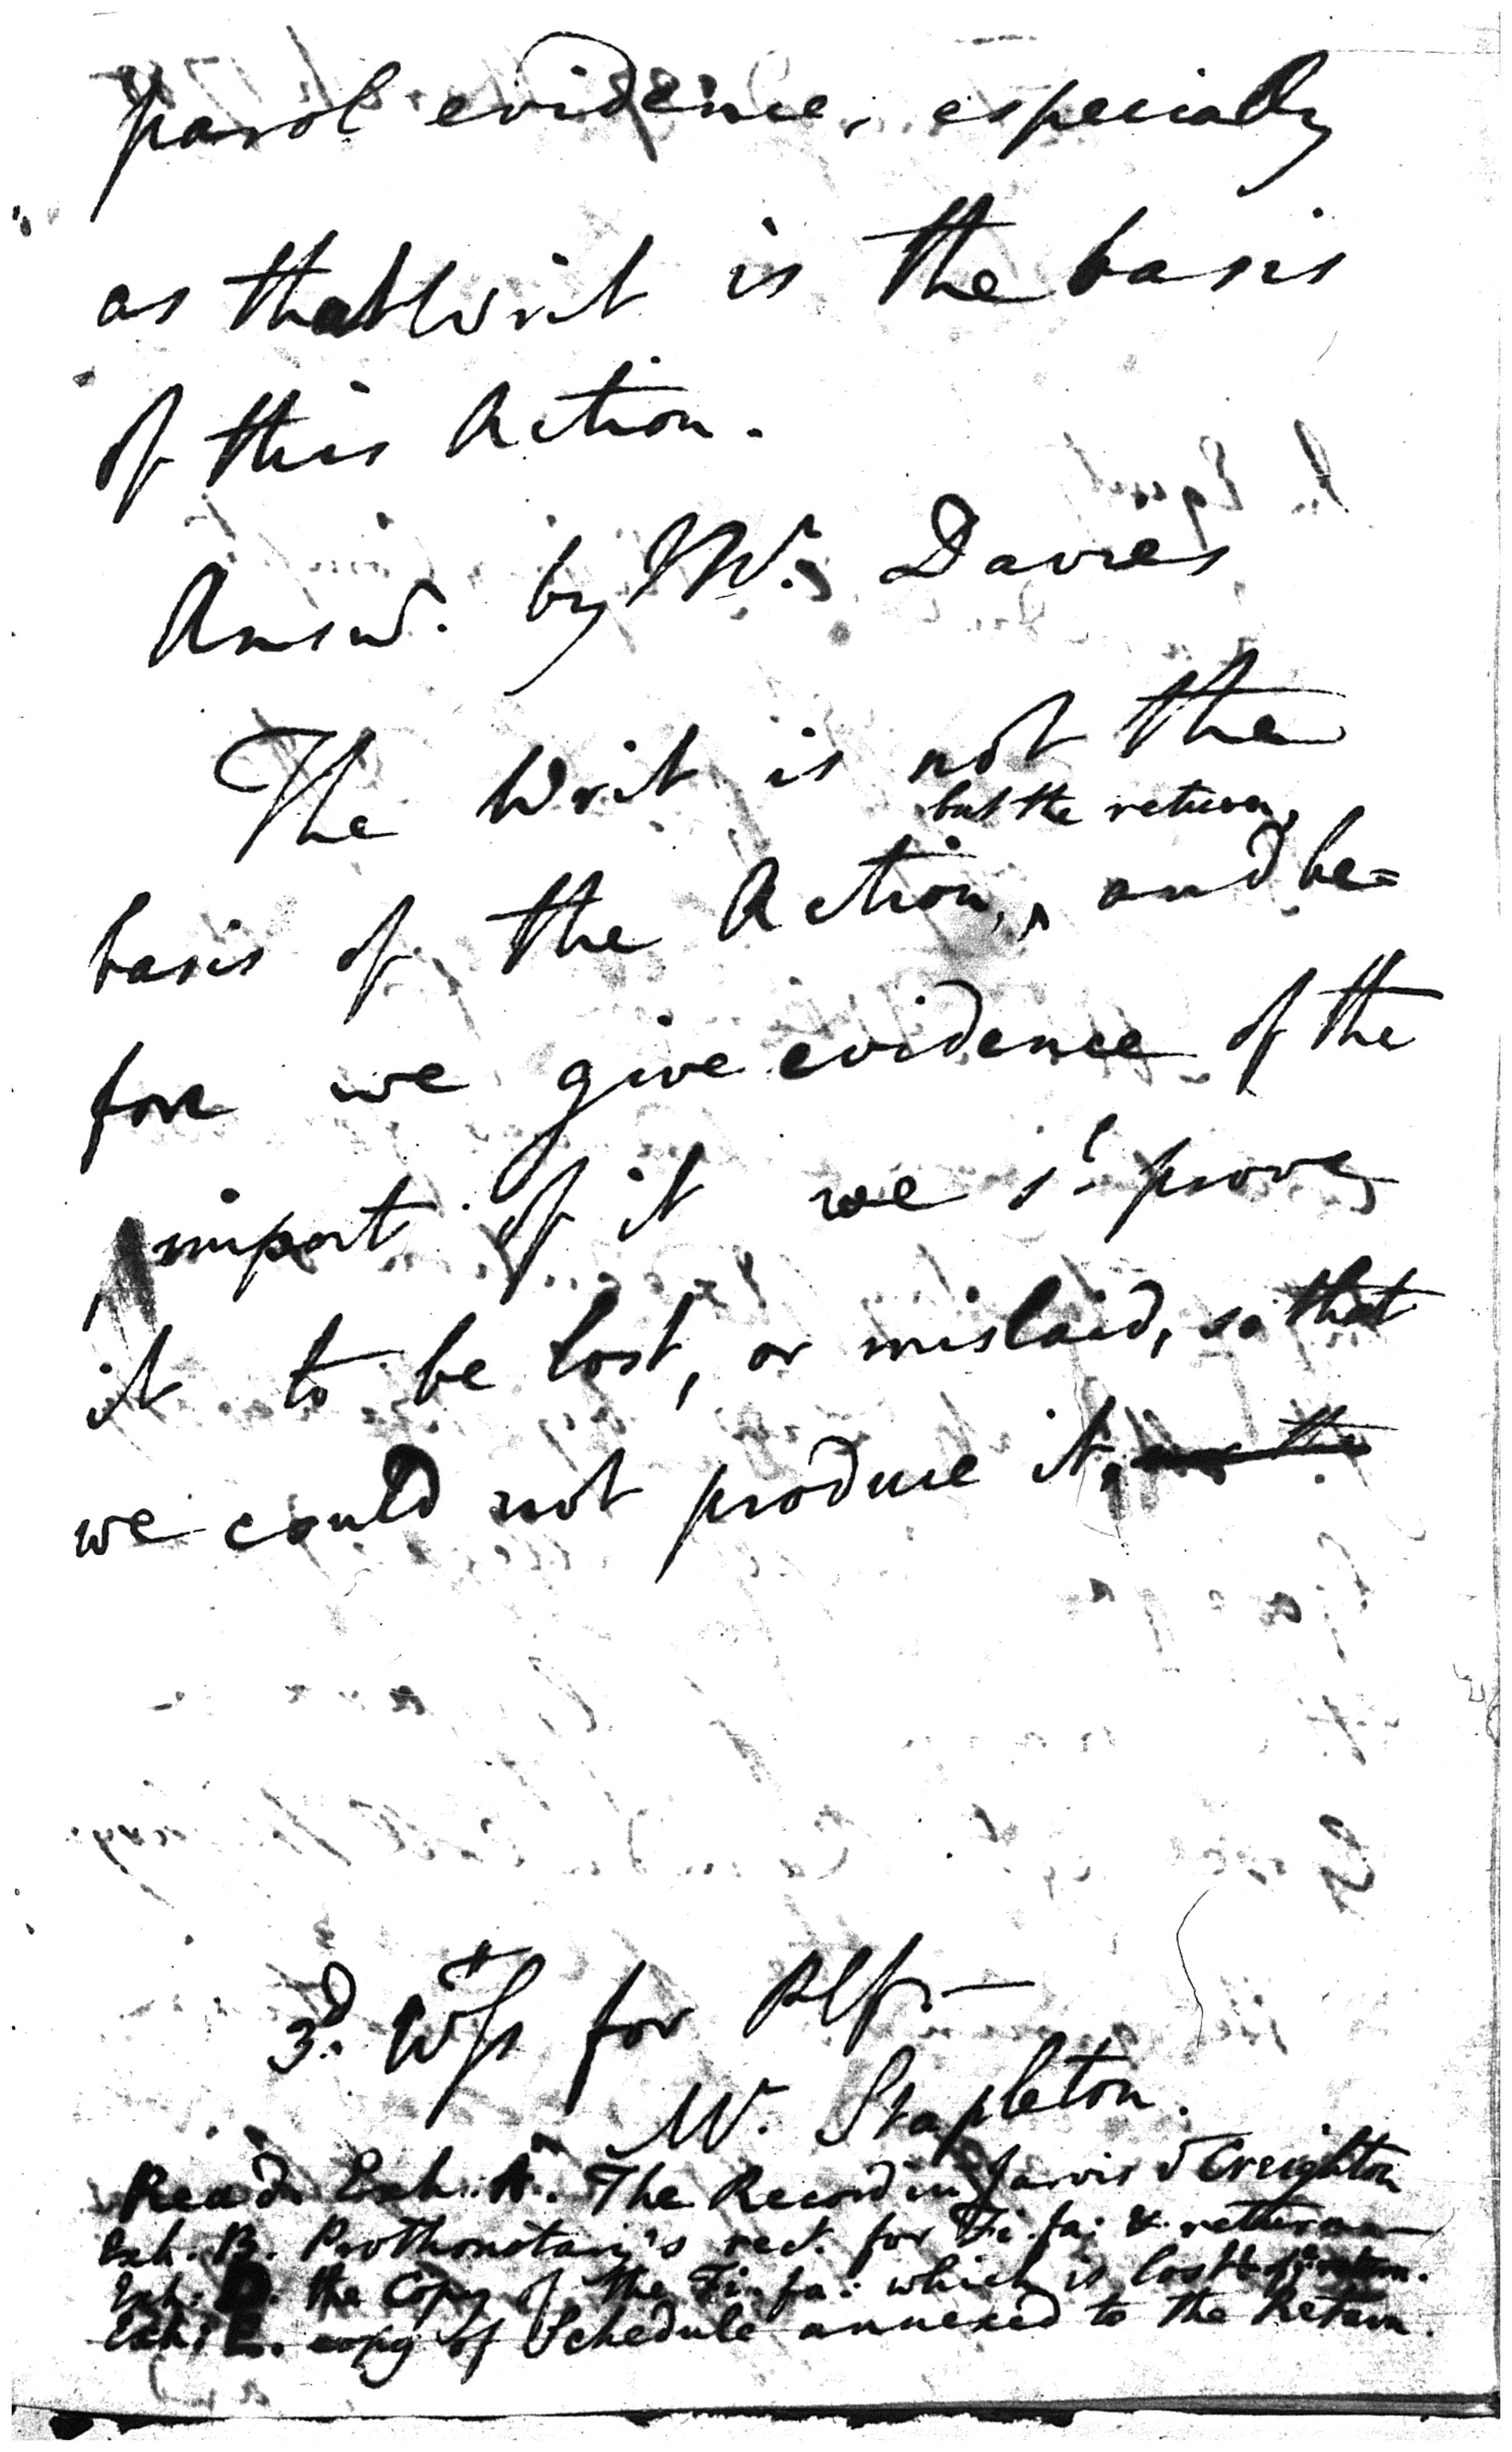 parol evidence, especially
as that Writ is the basis
of this Action.
Answ. by Mr. Davies
The Writ is not the
but the return,
basis of the Action, ‸ and be=
fore we give evidence of the
import of it we sd. prove
it to be lost, or mislaid, so that
we could not produce it,
3d. Wtss for Plf.—
W. Stapleton.
Read. Exh. A. The Record in Jarvis v Creighton
Exh. B. Prothonotary's rect. for Fi. fa: & return
Exh. D. the Copy of the Fi. fa: which is lost
Exh: E. copy of Schedule annexed to the Return.